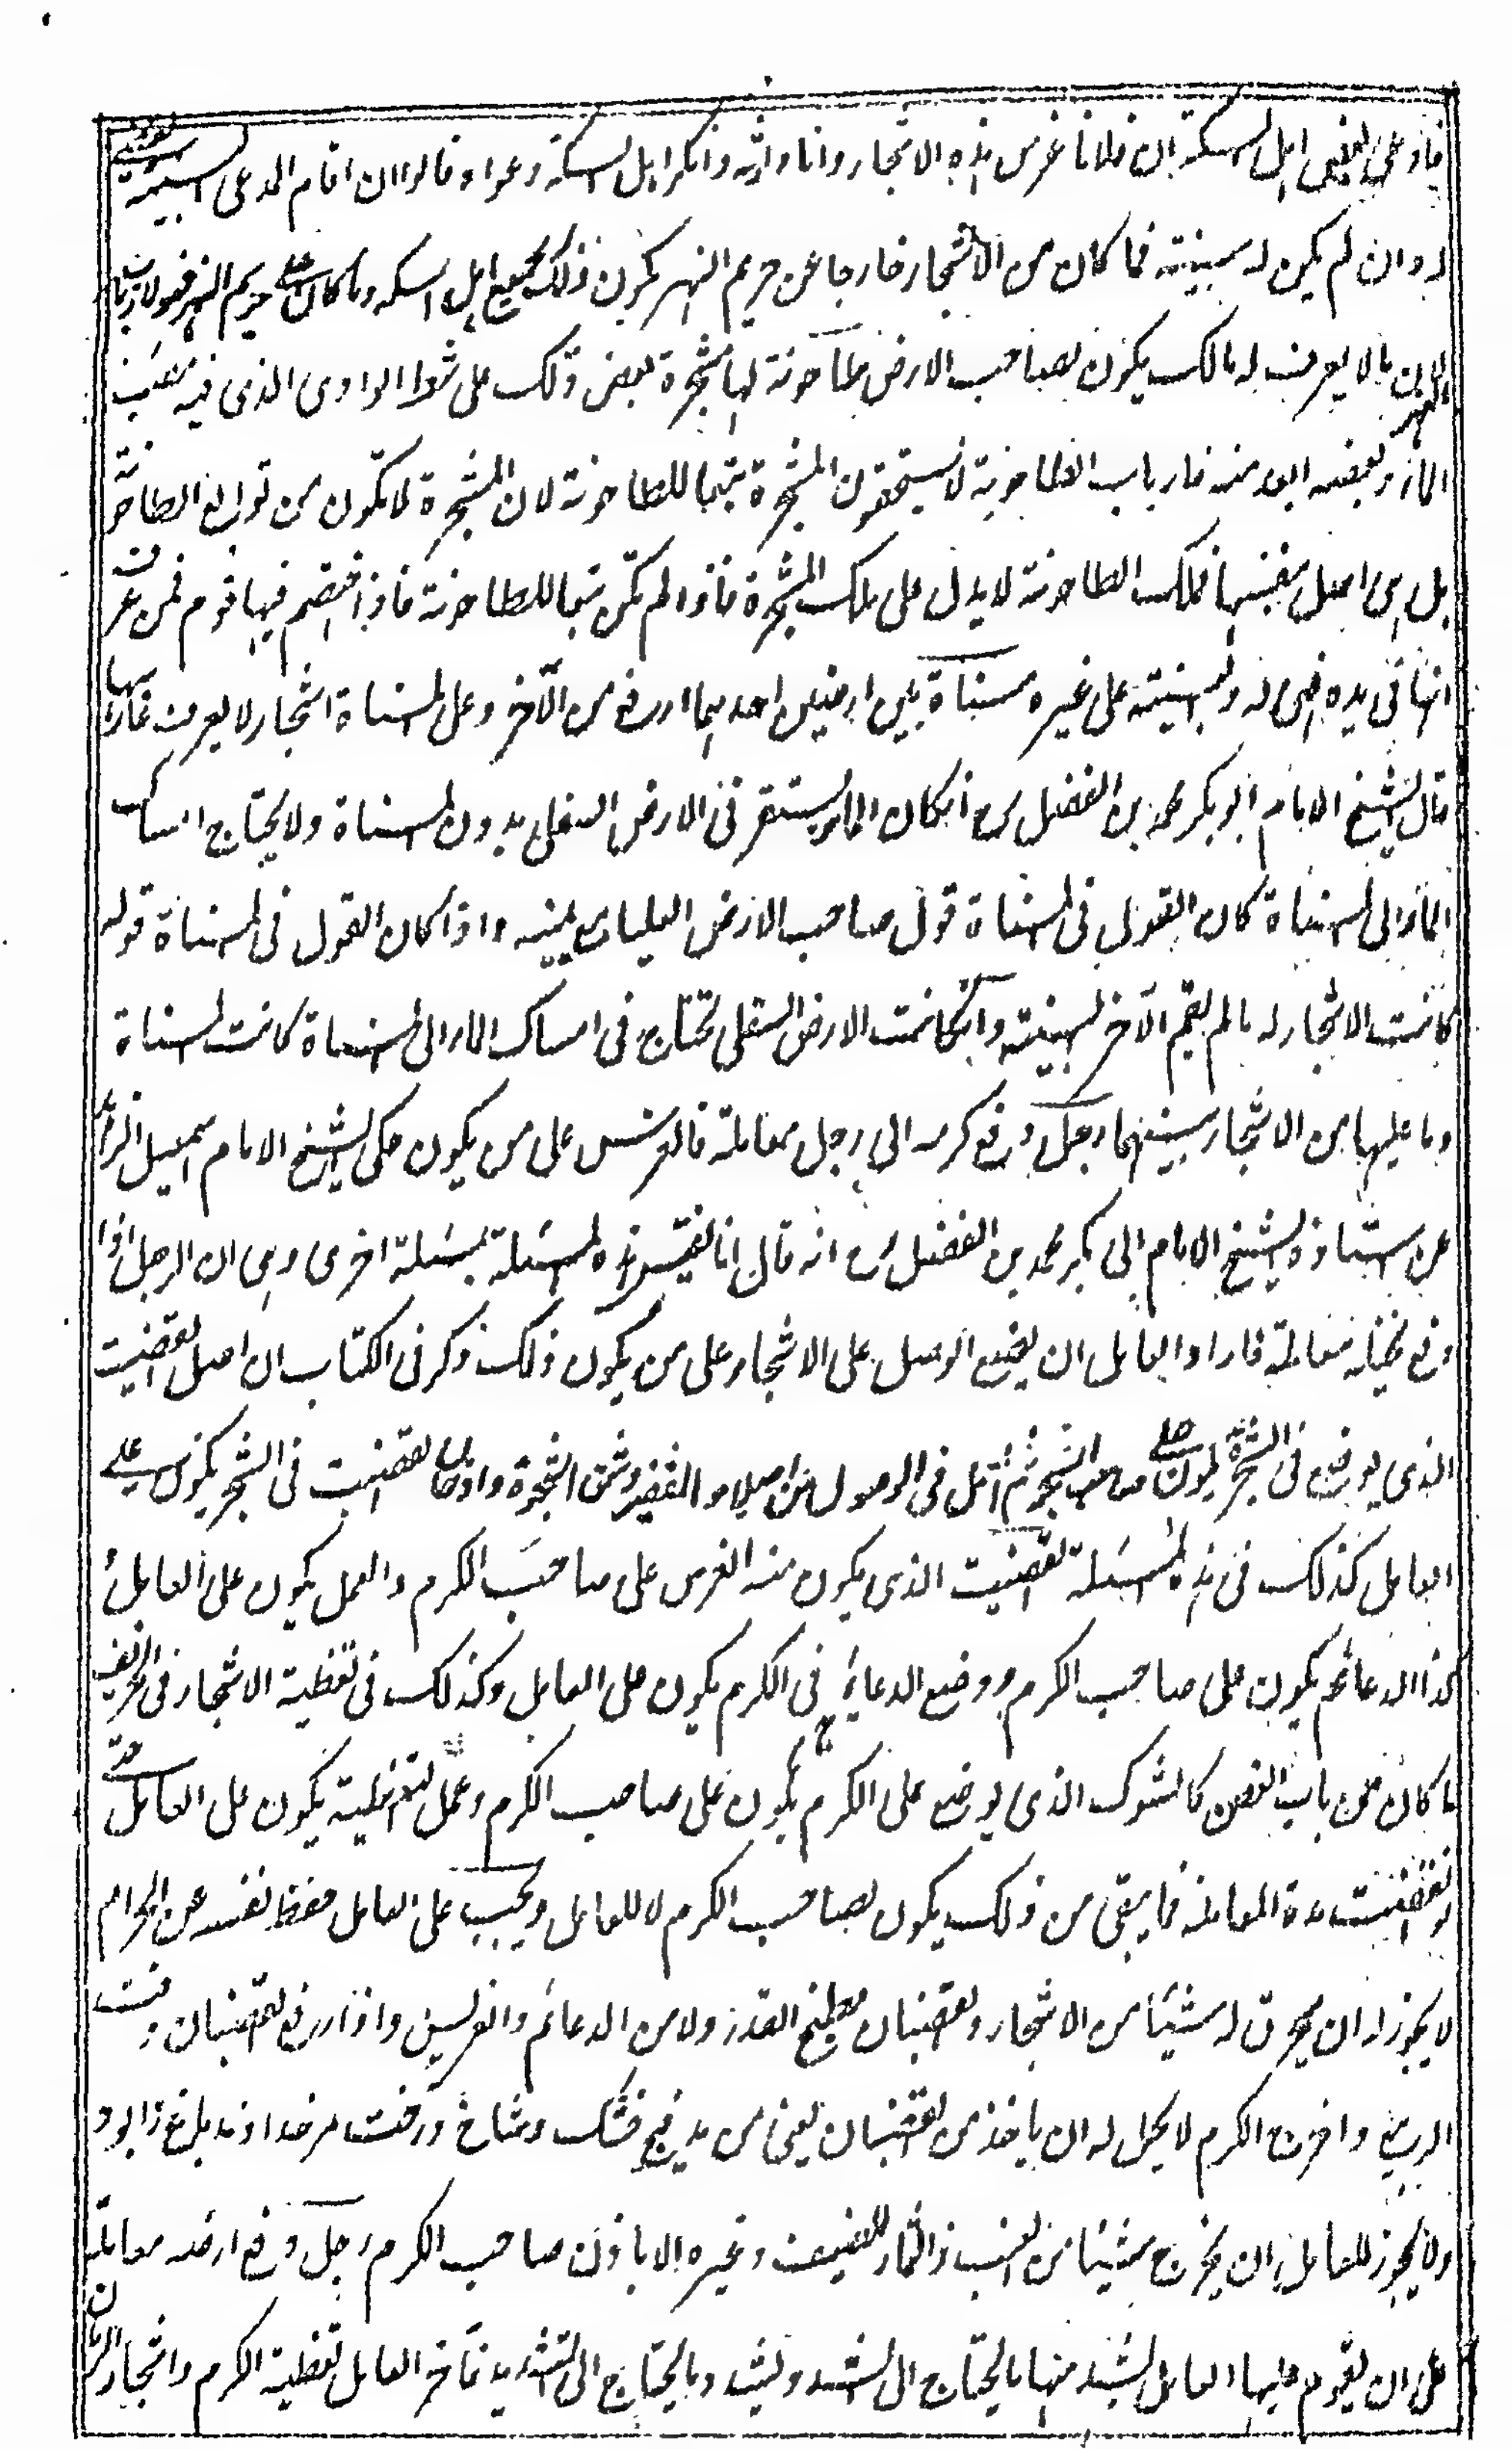 فادعى بعض اهل السكة ان فلانا غرس هذه الاشجار وانا وارثه وانكر اهل السكة دعواه قالوا ان اقام المدعى البينة يقضى
له وان لم يكن له بينة فما كان من الاشجار خارجا عن حريم النهر يكون ذلك لجميع اهل السكة وما كان على حريم النهر فهو لارباب
النهر لان ما لا يعرف له مالك يكون لصاحب الارض طاحونة لها مشجرة بعض ذلك على شط الوادى الذى فيه مصب
الماء وبعضه ابعد منه فارباب الطاحونة لا يستحقون المشجرة تبعا للطاحونة لان المشجرة لا تكون من توابع الطاحونة
بل هى اصل بنفسها فملك الطاحونة لا يدل على ملك المشجرة فاذا لم تكن تبعا للطاحونة فاذا اختصم فيها قوم فمن عرف
انها فى يده فهى له والبينة على غيره مسناة بين ارضين احديهما ارفع من الآخر وعلى المسناة اشجار لا يعرف غارسها
قال الشيخ الامام ابو بكر محمد بن الفضل رح ان كان الماء يستقر فى الارض السفلى بدون المسناة ولا يحتاج امساك
الماء الى المسناة كان القول فى المسناة قول صاحب الارض العليا مع يمينه واذا كان القول فى المسناة قوله
كانت الاشجار له ما لم يقم الآخر البينة وان كانت الارض السفلى تحتاج فى امساك الماء الى المسناة كانت المسناة
وما عليها من الاشجار بينهما رجل دفع كرمه الى رجل معاملة فالغرس على من يكون حكى الشيخ الامام اسمعيل الزاهد
عن استاذه الشيخ الامام ابى بكر محمد بن الفضل رح انه قال انا نقيس هذه المسئلة بمسئلة اخرى وهى ان الرجل اذا
دفع نخيله معاملة فاراد العامل ان يضع الوصل على الاشجار على من يكون ذلك ذكر فى الكتاب ان اصل القضيب
الذى يوضع فى الشجرة يكون على صاحب الشجر ثم العمل فى الوصول من اصلاح القضيب وشق الشجرة وادخال القضيب فى الشجر يكون على
العامل كذلك فى هذه المسئلة القضيب الذى يكون منه الغرس على صاحب الكرم والعمل يكون على العامل
كذا الدعائم يكون على صاحب الكرم ووضع الدعائم فى الكرم يكون على العامل وكذلك فى تغطية الاشجار فى الخريف
ما كان من باب العين كالشوك الذى يوضع على الكرم يكون على صاحب الكرم وعمل التغطية يكون على العامل حتى
لو انقضت مدة المعاملة فما يبقى من ذلك يكون لصاحب الكرم لا للعامل ويجب على العامل حفظ نفسه عن الحرام
لا يجوز له ان يحرق له شيئا من الاشجار والقضبان لطبخ القدر ولا من الدعائم والعريش واذا رفع القضبان وقت
الربيع واخرج الكرم لا يحل له ان ياخذ من القضبان يعنى من خشك وشاخ درخت مر خداوند باغ را بود
ولا يجوز للعامل ان يخرج شيئا من العنب والثمار للضيف وغيره الا باذن صاحب الكرم رجل دفع ارضه معاملة
على ان يقوم عليها العامل ليشد منها ما يحتاج الى الشد ويشد وما يحتاج الى التشديد فآخر العامل تغطية الكرم واشجار الرمان